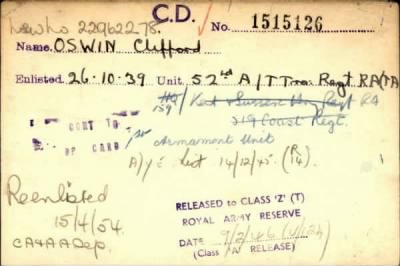 C.D.
New No 22962278.
No. 1515126
Name. OSWIN Clifford
Enlisted. 26-10-39 Unit 52nd A/T Trg Regt RA(TA
HQ
159/ Kent & Sussex Hvy Regt RA
519 Coast Regt.
CONT TO
DP CARD
Armament Unit
A/YE List 14/12/45. (R/14).
Reenlisted
15/4/54.
CA&AADep.
RELEASED to CLASS 'Z' (T)
ROYAL ARMY RESERVE
DATE 9/2/46
(Class 'A' RELEASE)